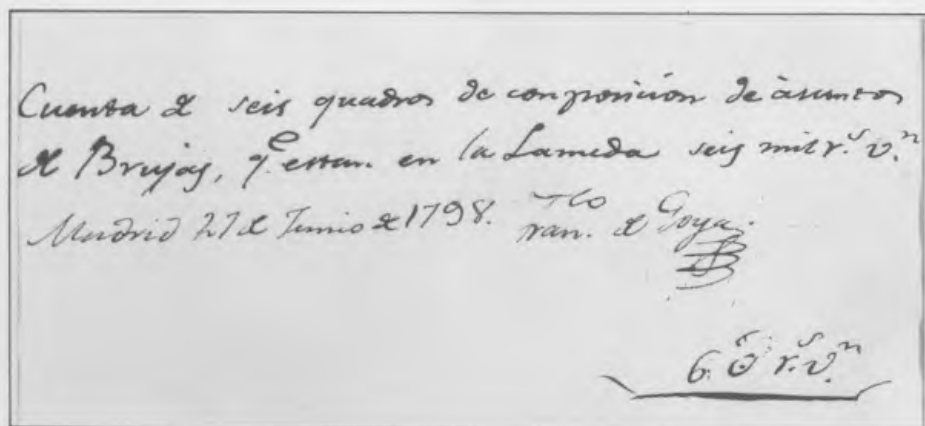 Cuenta de seis quadros de conposicion de àsuntos
de Brujas, q.e estan. en la Lameda seis mil r.s v.n
Madrid 27 de Junio de 1798. Fran.co de Goya.
6 r.s v.n